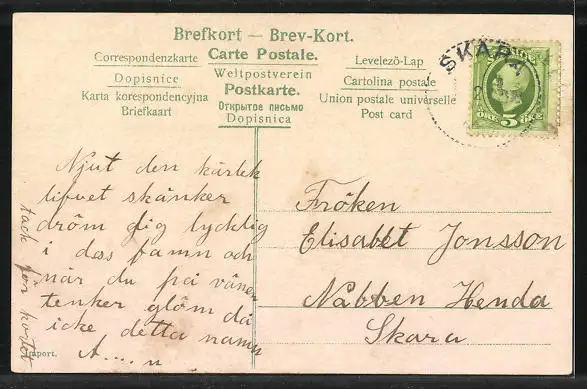 Brefkort — Brev-Kort.
Correspondenzkarte
Carte Postale.
Levelezö-Lap
Dopisnice
Weltpostverein
Cartolina postale
Karta korespondencyjna
Postkarte.
Union postale universelle
Briefkaart
Открытое письмо
Post card
Dopisnica
SKARA
5
ÖRE ÖRE
Njut den kärlek
lifvet skänker
dröm dig lycklig
i dess famn och
när du på vänner
tenker glöm då
icke detta namn
A....n
tack för kortet
Fröken
Elisabet Jonsson
Nabben Henda
Skara
Import.